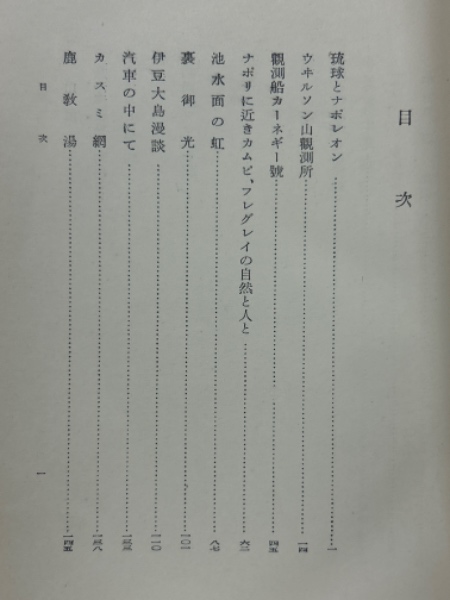 目次
琉球とナポレオン……一
ウヰルソン山觀測所……一四
觀測船カーネギー號……四五
ナポリに近きカムピ、フレグレイの自然と人と……六二
池水面の虹……八七
裏御光……一〇一
伊豆大島漫談……一一〇
汽車の中にて……一三三
カスミ網……一三八
鹿敎湯……一四五
目次
一